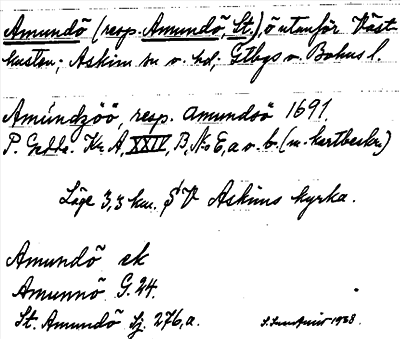 Amundö (resp. Amundö, St.), ö utanför Väst-
kusten; Askim sn o. hd; Gtbgs o. Bohus l.
Amúndzöö, resp. amundsö 1691.
P. Gedda. Kr. A, XXIV, B, No 6, a o. b. (m. kartbeskr.)
Läge 3,3 km. SV Askims kyrka.
Amundö ek
Amunnö G. 24.
St. Amundö Sj. 276, a.
1938.